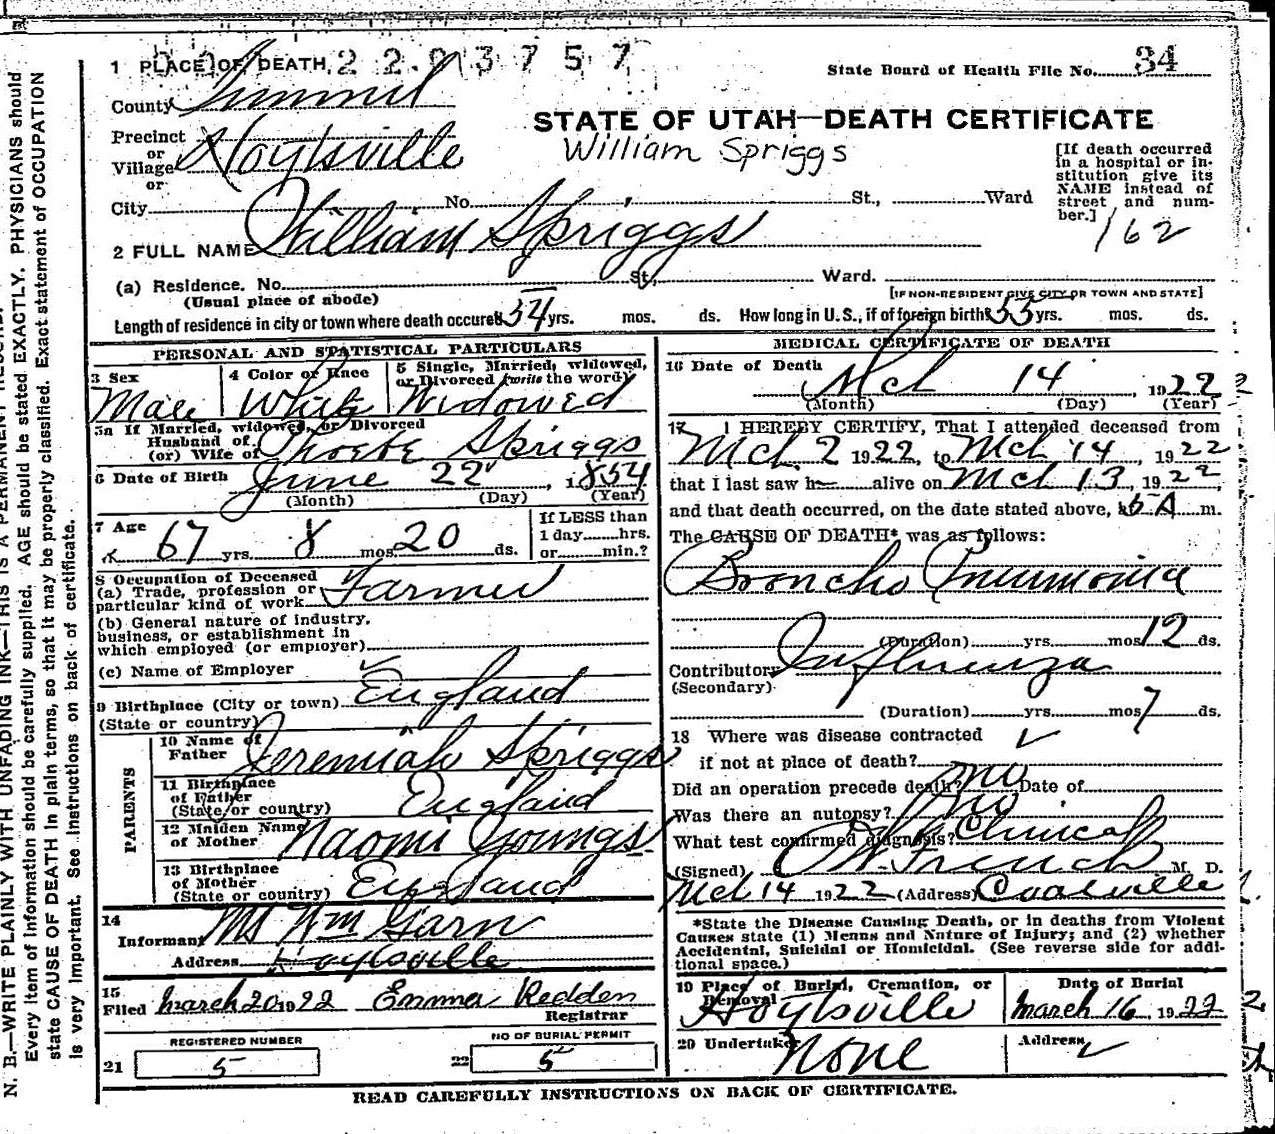 1 PLACE OF DEARTH 2 2 0 3 7 5 7
State Board of Health File No. 34
County Summit
STATE OF UTAH—DEATH CERTIFICATE
William Spriggs
Precinct
or
Village Hoytsville
or
City No. St., Ward
[If death occurred
in a hospital or in-
stitution give its
NAME instead of
street and num-
ber.]
162
2 FULL NAME William Spriggs
(a) Residence. No. St, Ward.
(Usual place of abode)
[IF NON-RESIDENT GIVE CITY OR TOWN AND STATE]
Length of residence in city or town where death occured 54 yrs. mos. ds. How long in U. S., if of foreign birth 55 yrs. mos. ds.
PERSONAL AND STATISTICAL PARTICULARS
3 Sex
Male
4 Color or Race
White
5 Single, Married, widowed,
or Divorced (write the word)
Widowed
5a If Married, widowed, or Divorced
Husband of
(or) Wife of Phoebe Spriggs
6 Date of Birth June 22 1854
(Month) (Day) (Year)
7 Age
67 yrs. 8 mos. 20 ds.
If LESS than
1 day hrs.
or min.?
8 Occupation of Deceased
(a) Trade, profession or
particular kind of work Farmer
(b) General nature of industry,
business, or establishment in
which employed (or employer)
(c) Name of Employer
9 Birthplace (City or town) England
(State or country)
PARENTS
10 Name of
Father Jeremiah Spriggs
11 Birthplace
of Father
(State or country) England
12 Maiden Name
of Mother Naomi Youngs
13 Birthplace
of Mother
(State or country) England
14
Informant Wm Garn
Address Hoytsville
15
Filed March 20 1922 Emma Redden
Registrar
REGISTERED NUMBER
21 5
NO OF BURIAL PERMIT
22 5
MEDICAL CERTIFICATE OF DEATH
16 Date of Death
Mch 14, 1922
(Month) (Day) (Year)
17 I HEREBY CERTIFY, That I attended deceased from
Mch. 2 1922, to Mch 14, 1922
that I last saw h alive on Mch 13, 1922,
and that death occurred, on the date stated above, 5 A m.
The CAUSE OF DEATH* was as follows:
Broncho Pneumonia
(Duration) yrs. mos 12 ds.
Contributory Influenza
(Secondary)
(Duration) yrs mos 7 ds.
18 Where was disease contracted
if not at place of death?
Did an operation precede death? no Date of
Was there an autopsy? No
What test confirmed diagnosis? Clinical
(Signed) French M. D.
Mch 14 1922 (Address) Coalville
*State the Disease Causing Death, or in deaths from Violent
Causes state (1) Means and Nature of Injury; and (2) whether
Accidental, Suicidal or Homicidal. (See reverse side for addi-
tional space.)
19 Place of Burial, Cremation, or
Removal
Hoytsville
Date of Burial
March 16, 1922
20 Undertaker
None
Address
READ CAREFULLY INSTRUCTIONS ON BACK OF CERTIFICATE.
N. B.—WRITE PLAINLY WITH UNFADING INK—THIS IS A PERMANENT
Every item of Information should be carefully supplied. AGE should be stated EXACTLY. PHYSICIANS should
state CAUSE OF DEATH in plain terms, so that it may be properly classified. Exact statement of OCCUPATION
is very important. See instructions on back of certificate.